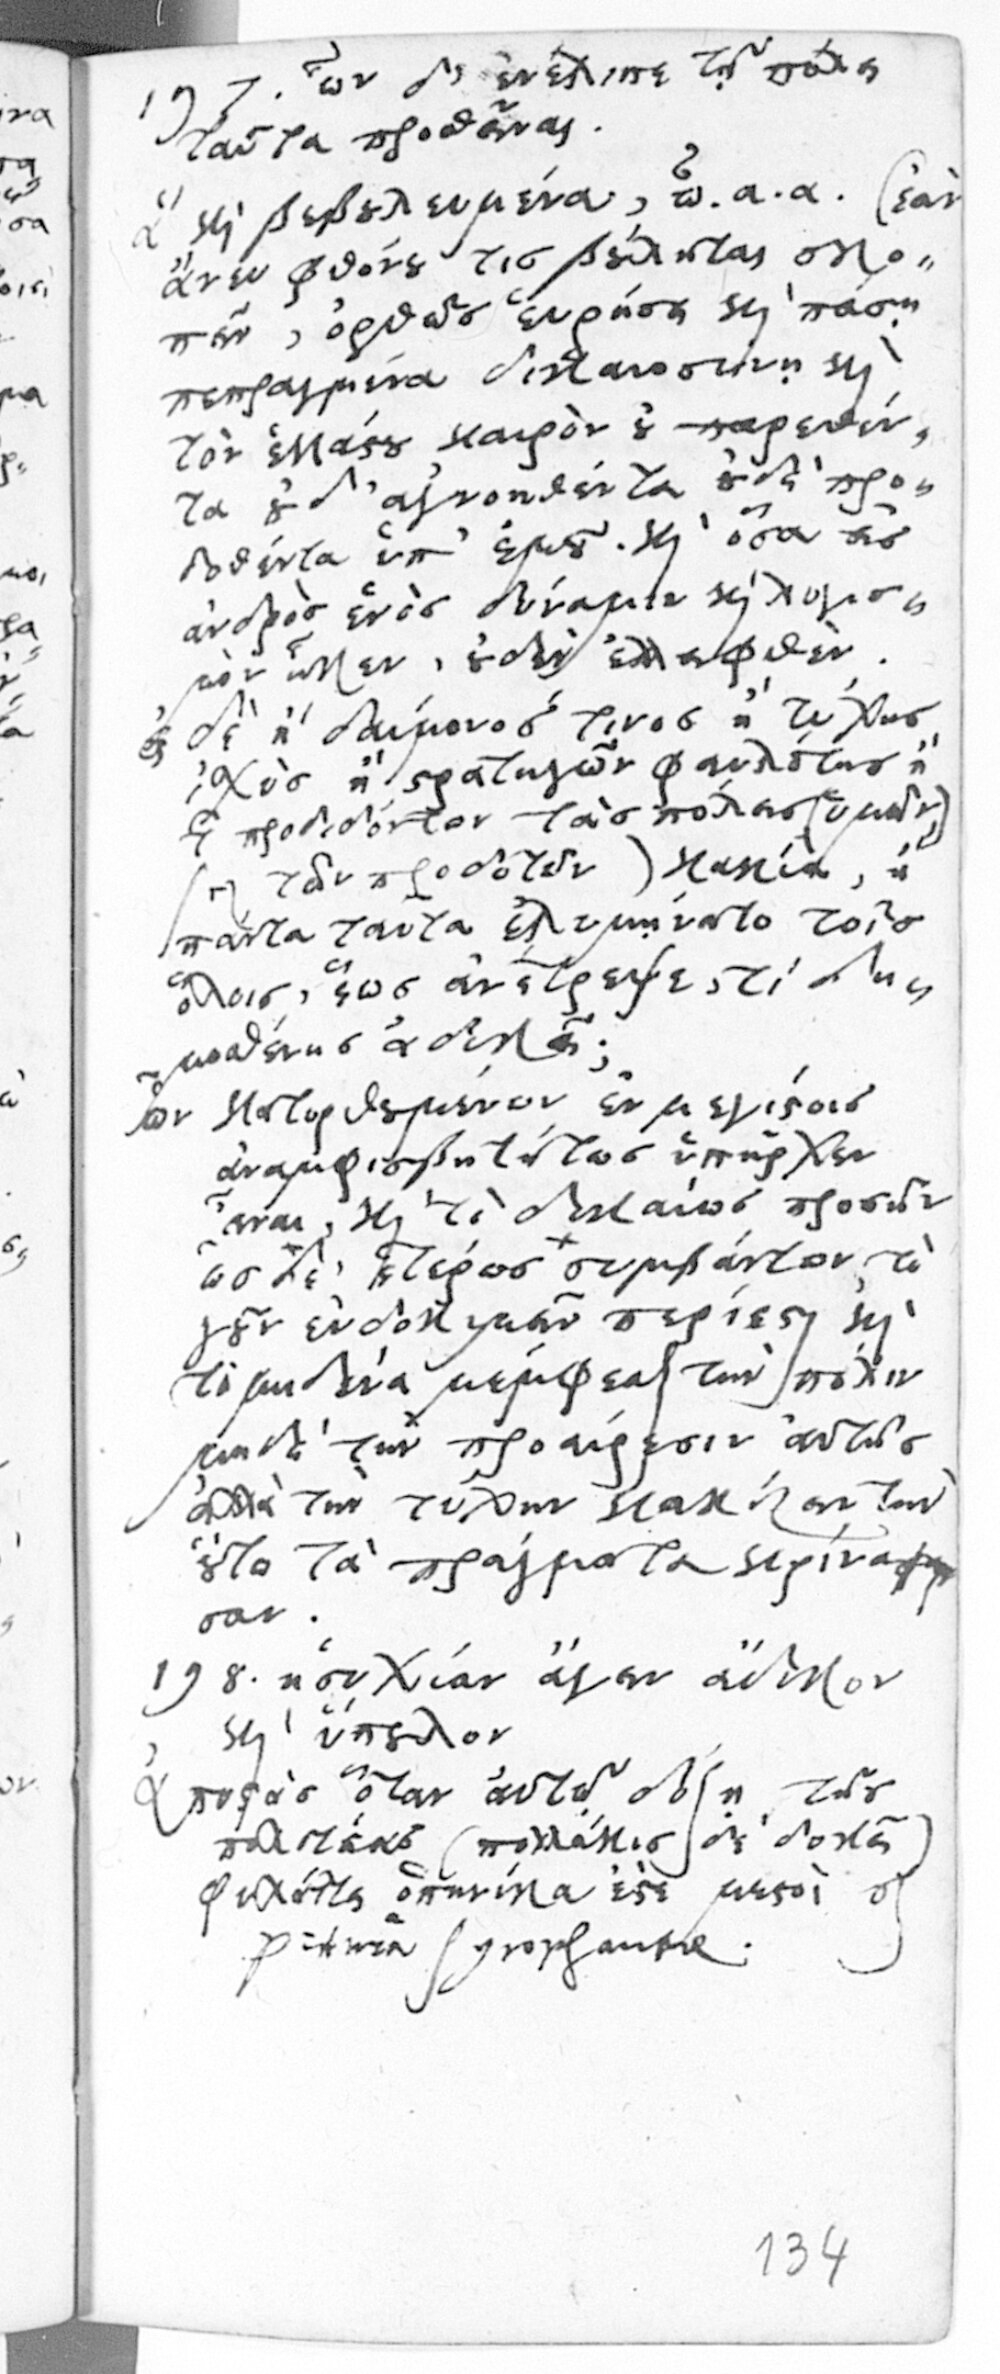 197. ὧν δ' ἐνέλιπε τῇ πόλει
ταῦτα προσθεῖναι.
ἃ καὶ βεβουλευμένα, ὦ. α. α. (ἐὰν
ἄνευ φθόνου τις βούληται σκο=
πεῖν, ὀρθῶς εὑρήσει καὶ πάσῃ
πεπραγμένα δικαιοσύνῃ καὶ
τὸν ἑκάστου καιρὸν οὐ παρεθέν=
τα οὐδ' ἀγνοηθέντα οὐδὲ προ=
δοθέντα ὑπ' ἐμοῦ. καὶ ὅσα εἰς
ἀνδρὸς ἑνὸς δύναμιν καὶ λογισ=
μὸν ἧκεν, οὐδὲν ἐλλειφθὲν.
εἰ δὲ ἢ δαίμονός τινος ἢ τύχης
ἰσχὺς ἢ στρατηγῶν φαυλότης ἢ
τῶν προδιδόντων τὰς πόλεις (ὑμῶν)
τῶν προδότων) κακία, ἢ
πάντα ταῦτα ἐλυμήνατο τοῖς
ὅλοις, ἕως ἀνέτρεψε, τί δη=
μοσθένης ἀδικεῖ;
ὧν κατορθουμένων ἐν μεγίστοις
ἀναμφισβητήτως ὑπῆρχεν
εἶναι, καὶ τὸ δικαίως προσῆν
ὡς δὲ ἑτέρως συμβάντων, τὸ
γοῦν εὐδοκιμεῖν περίεστι καὶ
τὸ μηδένα μέμφεσθαι τὴν πόλιν
μηδὲ τὴν προαίρεσιν αὐτῆς
ἀλλὰ τὴν τύχην κακίζειν τὴν
οὕτω τὰ πράγματα κρίνα
σαν.
198. ἡσυχίαν ἄγειν ἄδικον
καὶ ὕπουλον
ἀποστὰς ὅταν αὐτῷ δόξῃ τῆς
πολιτείας (πολλάκις δὲ δοκεῖ)
φυλάττει ὁπηνίκα ἔσεσθε μεστοὶ
Sycophantae.
134